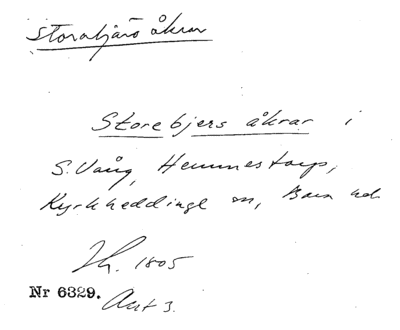 Storabjärs åkrar
Storebjers åkrar i
S. Vång, Hemmestorps,
Kyrkheddinge sn, Bara hd
Nr 6329. 1805
Akt 3.